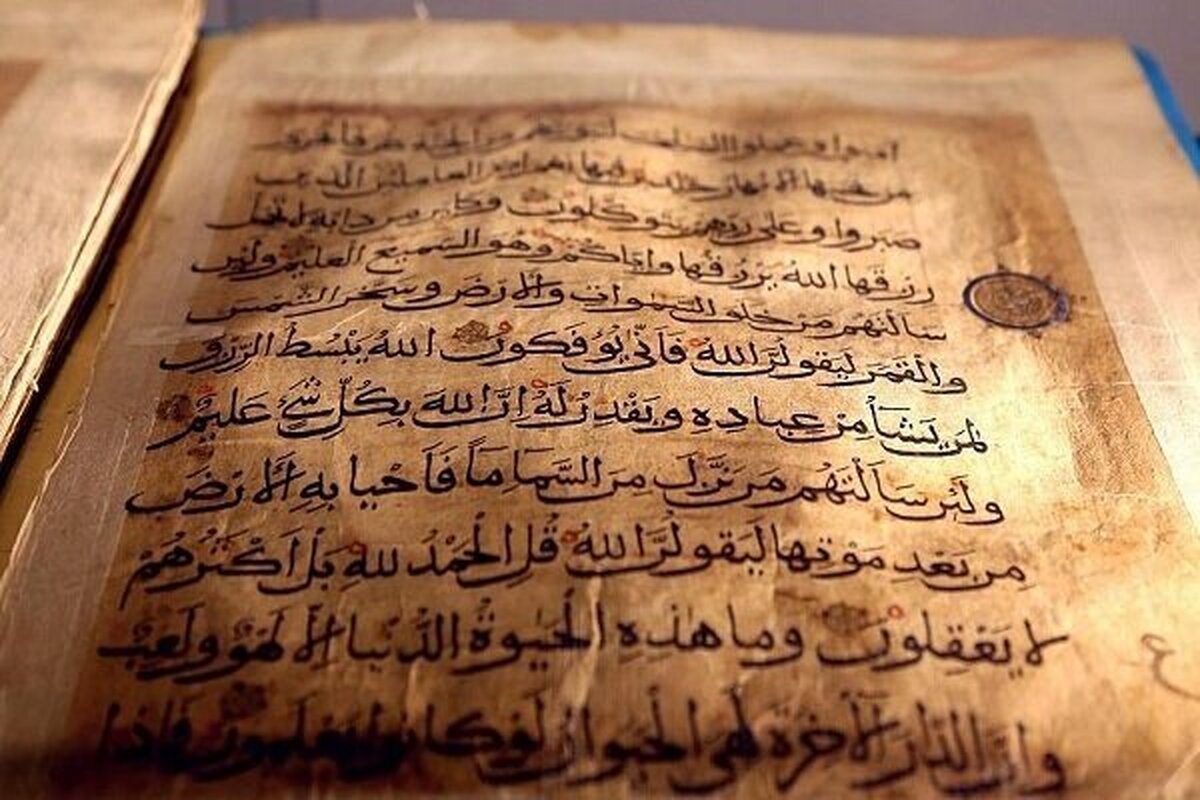 آمنوا وعملوا الصالحات لنبوئنهم من الجنة غرفا تجري
من تحتها الانهار خالدين فيها نعم اجر العاملين الذين
صبروا وعلى ربهم يتوكلون وكاين من دابة لا تحمل
رزقها الله يرزقها واياكم وهو السميع العليم ولئن
سالتهم من خلق السموات والارض وسخر الشمس
والقمر ليقولن الله فانى يؤفكون الله يبسط الرزق
لمن يشا من عباده ويقدر له ان الله بكل شي عليم
ولئن سالتهم من نزل من السما ما فاحيا به الارض
من بعد موتها ليقولن الله قل الحمد لله بل اكثرهم
لا يعقلون وما هذه الحيوة الدنيا الا لهو ولعب
وان الدار الآخرة لهي الحيوان لو كانوا يعلمون فاذا
ع